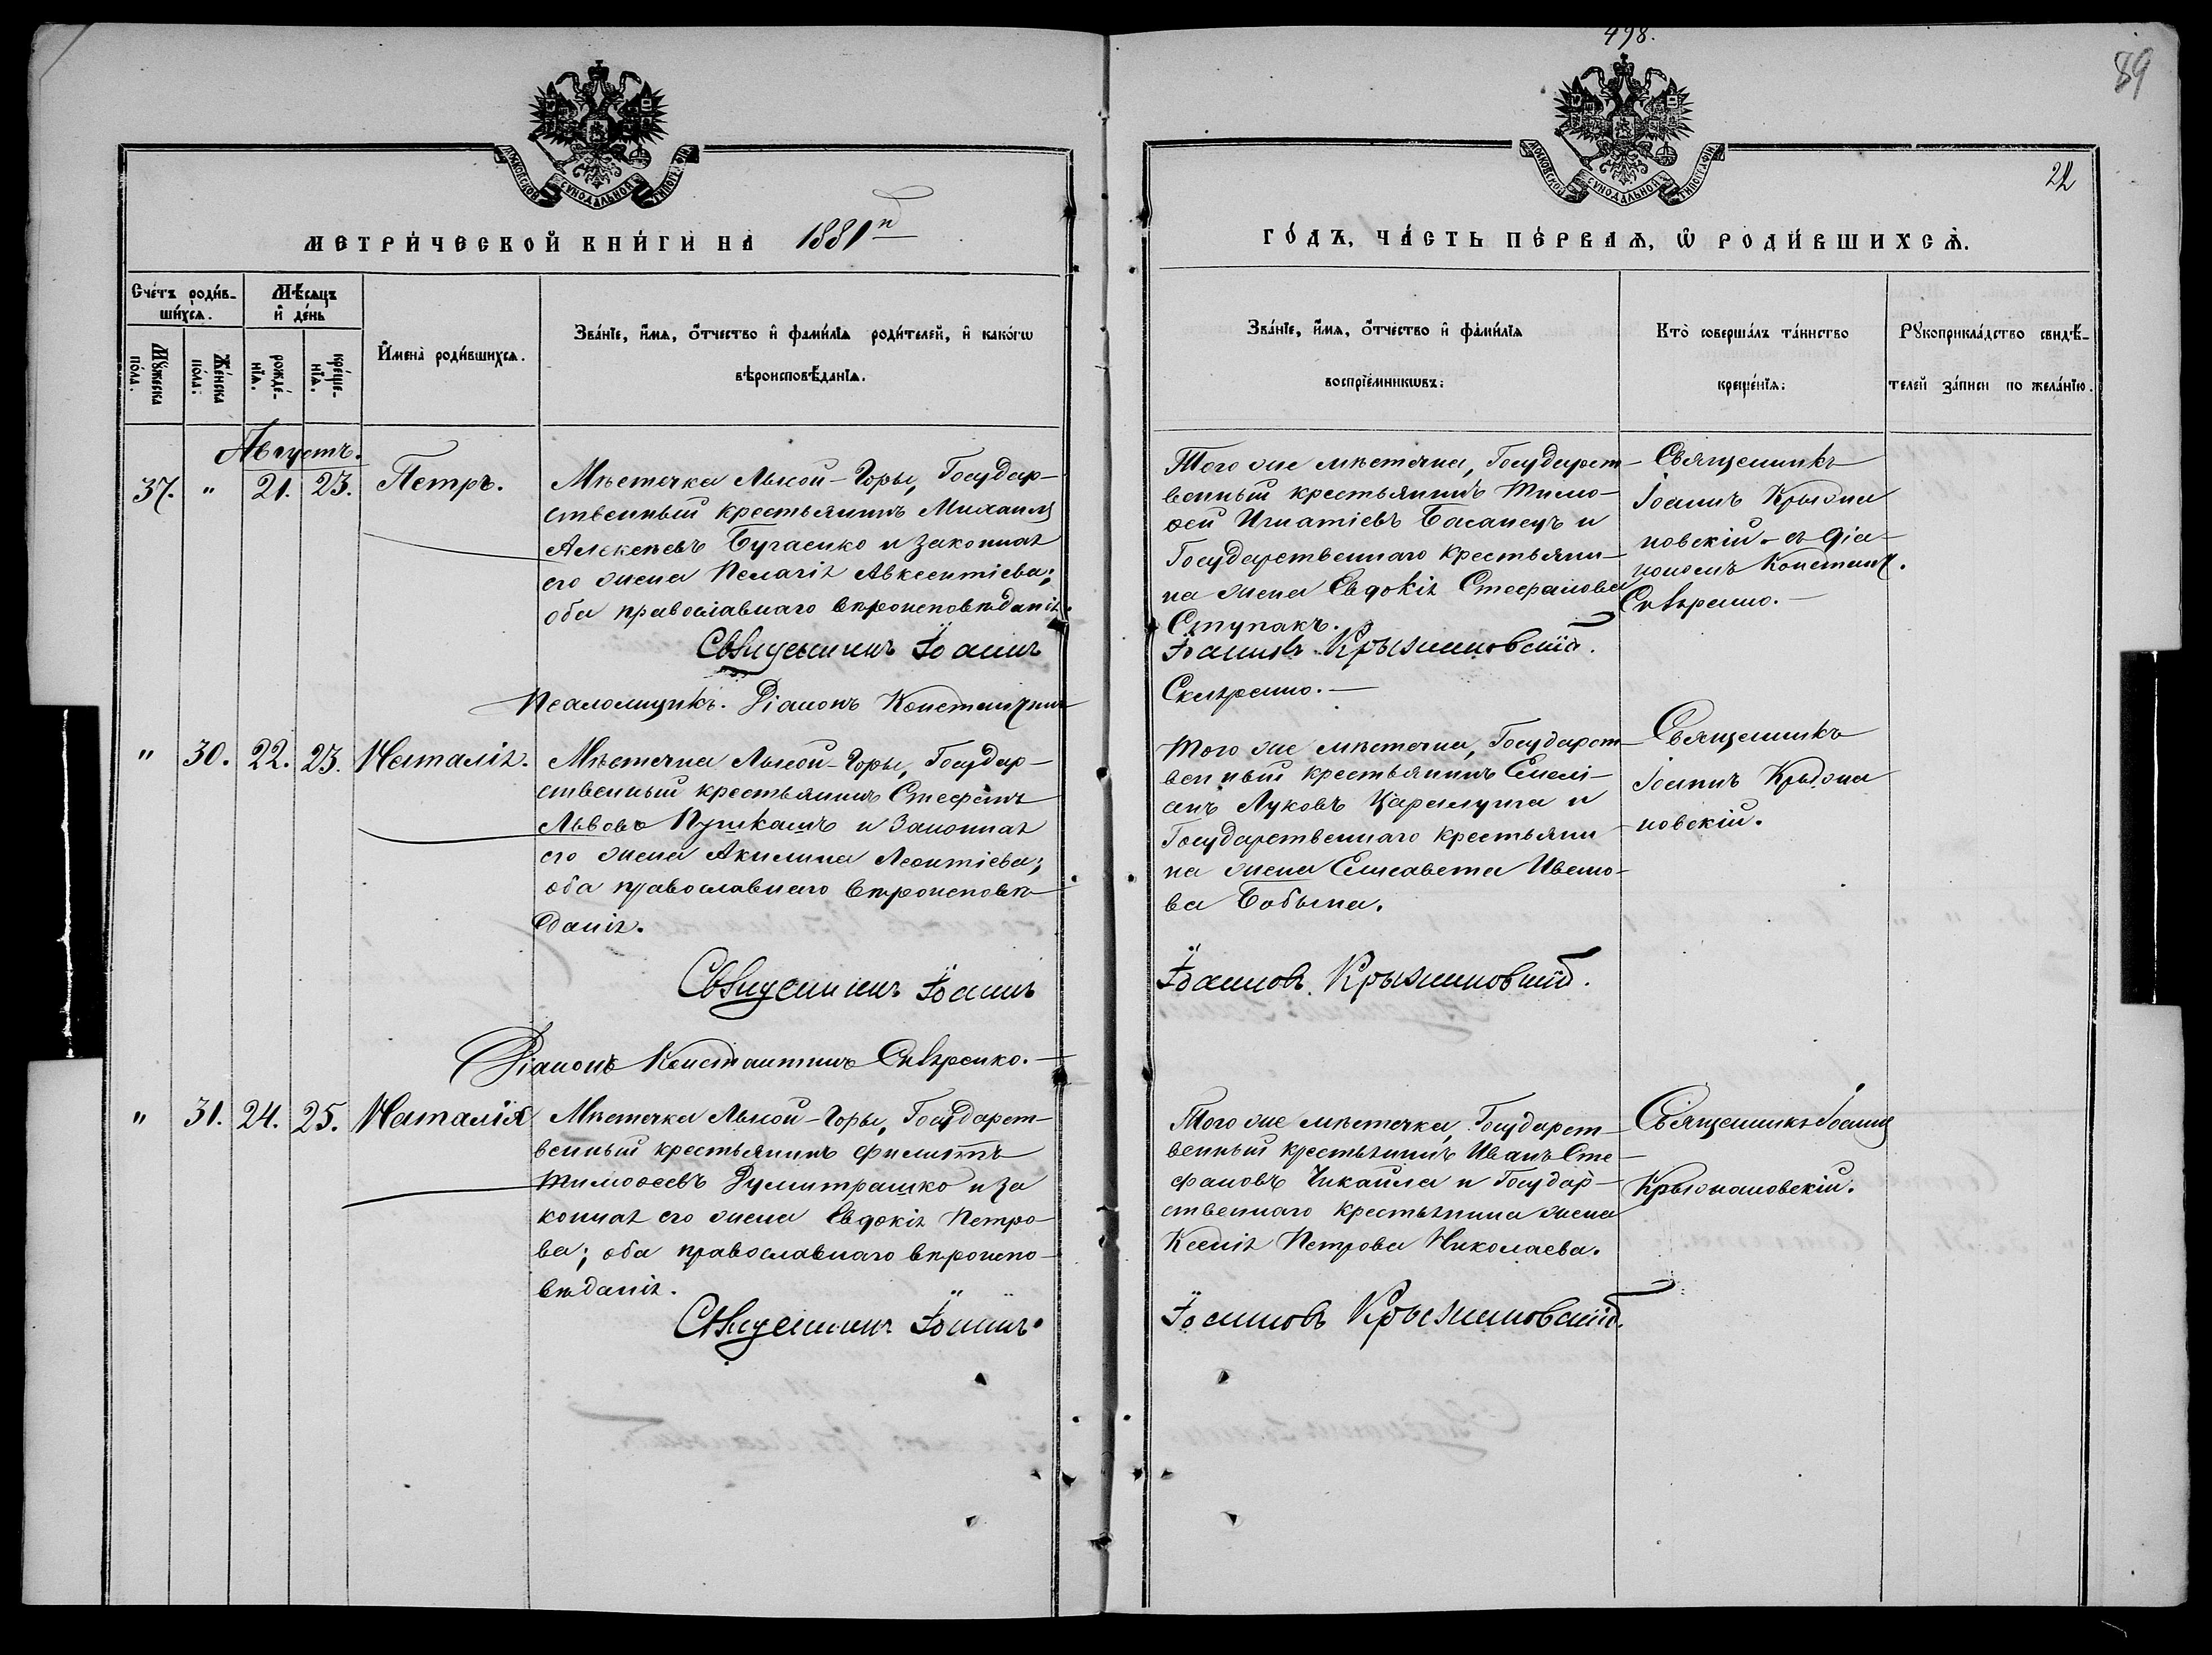 498.
89
22
МОСКОВСКОЙ СѴНОДАЛЬНОЙ ТИПОГРАФІИ
МОСКОВСКОЙ СѴНОДАЛЬНОЙ ТИПОГРАФІИ
МЕТРИ́ЧЕСКОЙ КНИ́ГИ НА 1881й
ГО́ДЪ, ЧА́СТЬ ПЕ́РВАѦ, Ѽ РОДИ́ВШИХСѦ.
Сче́тъ роди́в-
ши́хсѧ.
Мѣ́сѧцъ
и҆ де́нь
Мꙋ́жеска
по́ла.
Же́нска
по́ла:
рожде́-
нїѧ.
креще-
нїѧ.
И҆мена̀ роди́вшихсѧ.
Зва́нїе, и҆́мѧ, ѻ҆́тчество и҆ фами́лїѧ роди́телей, и҆ како́гѡ
вѣроисповѣ́данїѧ.
Зва́нїе, и҆́мѧ, ѻ҆́тчество и҆ фами́лїѧ
воспрїе́мникѡвъ:
Кто̀ соверша́лъ та́инство
креще́нїѧ:
Рꙋкоприкла́дство свидѣ́-
телей за́писи по жела́нїю.
Августъ.
37. " 21. 23. Петръ.
Мѣстечка Лысой-Горы, Государ-
ственный крестьянинъ Михаилъ
Алексѣевъ Бугаенко и законная
его жена Пелагія Авксентіева;
оба православнаго вѣроисповѣданія.
Священникъ Іоаннъ
Псаломщикъ. Діаконъ Константинъ
Того же мѣстечка, Государст-
венный крестьянинъ Тимо-
ѳей Игнатіевъ Басанецъ и
Государственнаго крестьяни-
на жена Евдокія Стефанова
Ступакъ.
Іоаннъ Крыжановскій.
Священникъ
Іоаннъ Крыжа
новскій - съ діа-
кономъ Констант.
" 30. 22. 23. Наталія.
Мѣстечка Лысой-Горы, Государ-
ственный крестьянинъ Стефанъ
Львовъ Пушкашъ и Законная
его жена Акилина Леонтіева;
оба православнаго вѣроисповѣ-
данія.
Священникъ Іоаннъ
Діаконъ Константинъ
Того же мѣстечка, Государст-
венный крестьянинъ Емелі-
анъ Луковъ и
Государственнаго крестьяни-
на жена Елисавета Ивано-
ва
Іоаннъ Крыжановскій.
Священникъ
Іоаннъ Крыжа
новскій.
" 31. 24. 25. Наталія
Мѣстечка Лысой-Горы, Государст-
венный крестьянинъ Филиппъ
Тимоѳеевъ Думитрашко и за
конная его жена Евдокія Петро-
ва; оба православнаго вѣроиспо-
вѣданія.
Священникъ Іоаннъ
Того же мѣстечка, Государст-
венный крестьянинъ Иванъ Сте-
фановъ Чикайла и Государ-
ственнаго крестьянина жена
Ксенія Петрова Николаева.
Іоаннъ Крыжановскій.
Священникъ Іоаннъ
Крыжановскій.